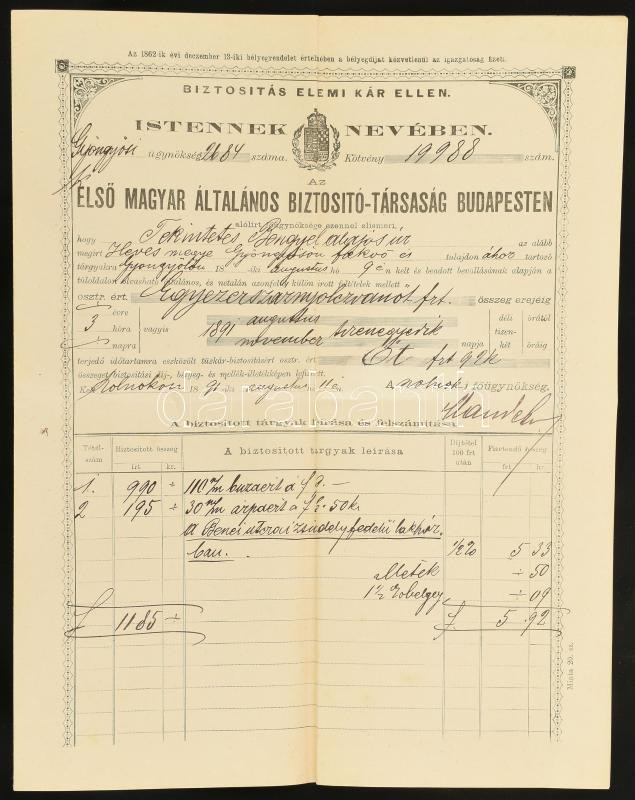 Az 1862-ik évi deczember 12-iki bélyegrendelet értelmében a bélyegdíjat közvetlenül az igazgatóság fizeti.
BIZTOSITÁS ELEMI KÁR ELLEN.
ISTENNEK NEVÉBEN.
Gyöngyösi ügynökség 2684 száma. Kötvény 19988 szám.
Az
ELSŐ MAGYAR ÁLTALÁNOS BIZTOSITÓ-TÁRSASÁG BUDAPESTEN
alólirt ügynöksége ezennel elismeri,
hogy Tekintetes Bengyel Alajos úr az alább
megirt Heves megye Gyöngyösön fekvő és tulajdon ához tartozó
tárgyakra Gyöngyösön 18 -iki augustus hó 9 én kelt és beadott bevallásának alapján a
túloldalon olvasható általános, és netalán azonfelül külön irott feltételek mellett
osztr. ért. Egyezeregyszáznyolczvanöt frt. összeg erejéig
évre augustus déli órától
3 hóra vagyis 1891 tizen-
napra november tizenegyedik napja két óráig
terjedő időtartamra eszközölt tűzkár-biztosításért osztr. ért Öt frt 92 k
összeget biztosítási díj-, bélyeg- és mellék-illetékképen lefizetett.
Kelt Szolnokon 1891 augustus 11 én A szolnoki főügynökség.
A biztosított tárgyak leírása és felszámítása.
Tétel-szám Biztosított összeg A biztosított tárgyak leírása Díjtétel 100 frt után Fizetendő összeg
frt. kr. frt. kr.
1. 990 ÷ 110 m/m buzáért á f 9. —
2 195 ÷ 30 m/m árpáért á f 6. 50 kr
a Benei utczai zsindelyfedelü lakház
ban. 1/2 % 5 33
illeték ÷ 50
÷ 09
f 1185 ÷ f. 5. 92
Minta 20. sz.
darabanth